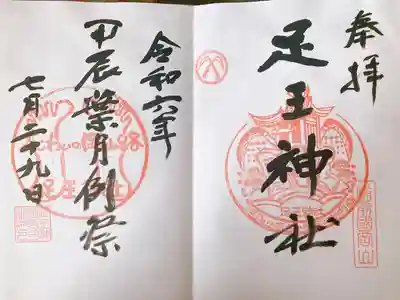 奉拝
足王神社
令和六年
甲辰葉月例祭
七月二十九日